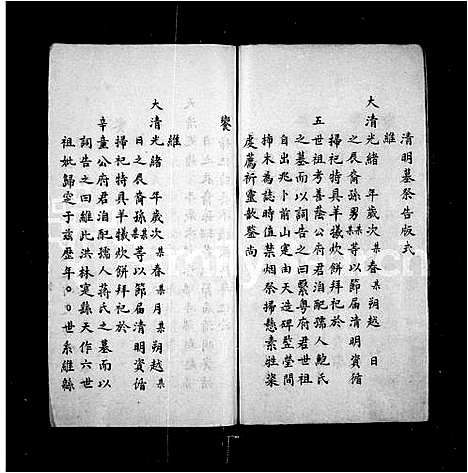 清明墓祭告版式
維
大清光緒　年歲次某春某朔越　日
之辰裔孫男某某等以節届清明資脩
掃祀特具羊犠炊餅拜祀於
五世祖考善蔭公府君洎配孺人鮑氏
之墓而以詞告之曰緊粵府君世祖
自出兆卜前山寔由天造碑監塋間
柿木為誌時值禁烟祭掃懸素姓菜
虔薦祈靈歆鑒尚
饗
維
大清光緒　年歲次某春某月某朔越某
日之辰裔孫某某等以節届清明資脩
掃祀特具羊犠炊餅拜祀於
辛童公府君洎配孺人蔣氏之墓而以
詞告之曰維此洪林寔孫天作六世
祖妣歸窆于兹歷年〇〇世系維緜